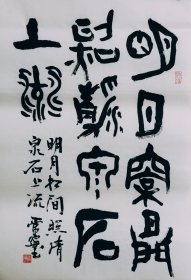 明月松間
照清泉石
上流
明月松间照清
泉石上流